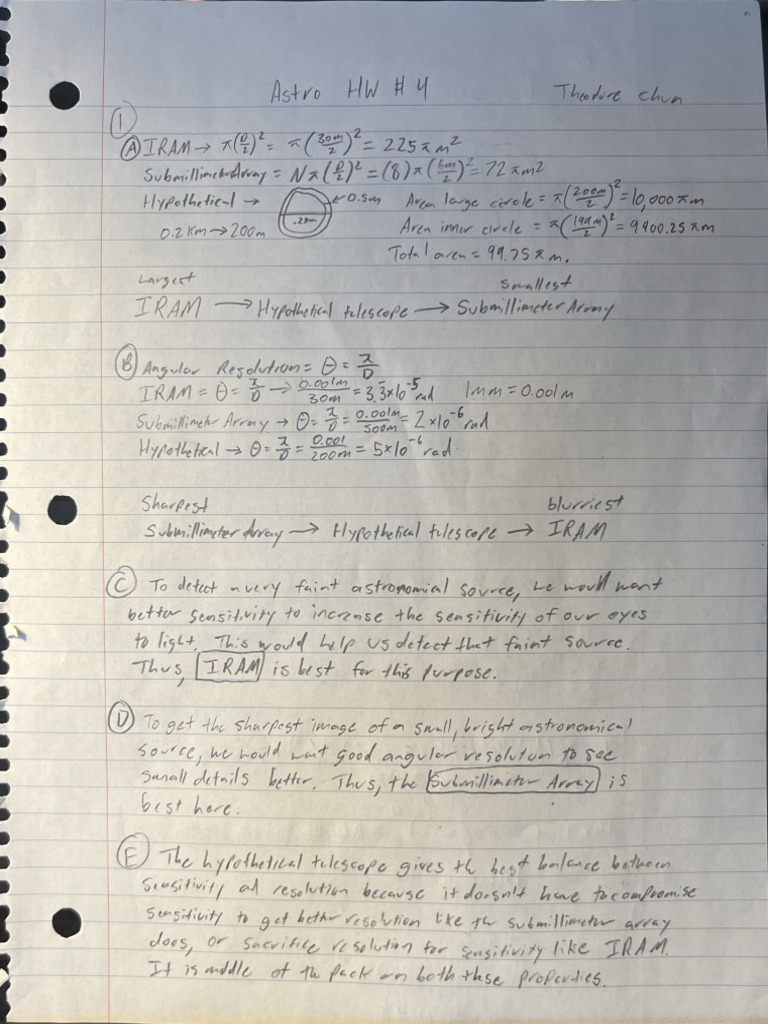 Astro HW #4 Theodore Chun
①
Ⓐ IRAM → π(D/2)² = π(30m/2)² = 225πm²
Submillimeter Array = Nπ(D/2)² = (8)π(6m/2)² = 72πm²
Hypothetical → .2km ← 0.5m Area large circle = π(200m/2)² = 10,000πm
0.2km → 200m Area inner circle = π(199m/2)² = 9900.25πm
Total area = 99.75πm.
Largest Smallest
IRAM → Hypothetical telescope → Submillimeter Array
Ⓑ Angular Resolution = θ = λ/D
IRAM = θ = λ/D → 0.001m/30m = 3.3̄×10⁻⁵ rad 1mm = 0.001m
Submillimeter Array → θ = λ/D = 0.001m/500m = 2×10⁻⁶ rad
Hypothetical → θ = λ/D = 0.001/200m = 5×10⁻⁶ rad.
Sharpest blurriest
Submillimeter Array → Hypothetical telescope → IRAM
Ⓒ To detect a very faint astronomical source, we would want
better sensitivity to increase the sensitivity of our eyes
to light. This would help us detect that faint source.
Thus, IRAM is best for this purpose.
Ⓓ To get the sharpest image of a small, bright astronomical
source, we would want good angular resolution to see
small details better. Thus, the Submillimeter Array is
best here.
Ⓔ The hypothetical telescope gives the best balance between
sensitivity and resolution because it doesn't have to compromise
sensitivity to get better resolution like the submillimeter array
does, or sacrifice resolution for sensitivity like IRAM.
It is middle of the pack on both these properties.